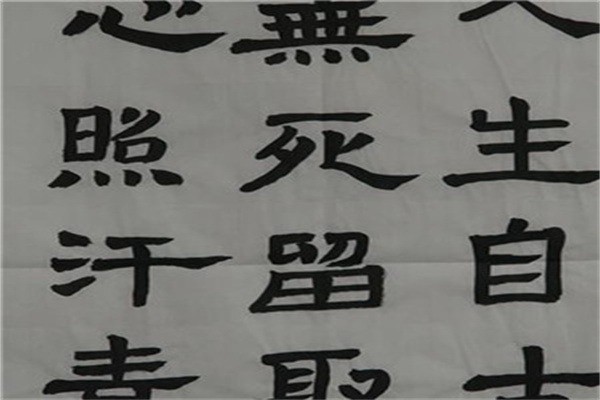 人生自古
無死留取
心照汗青